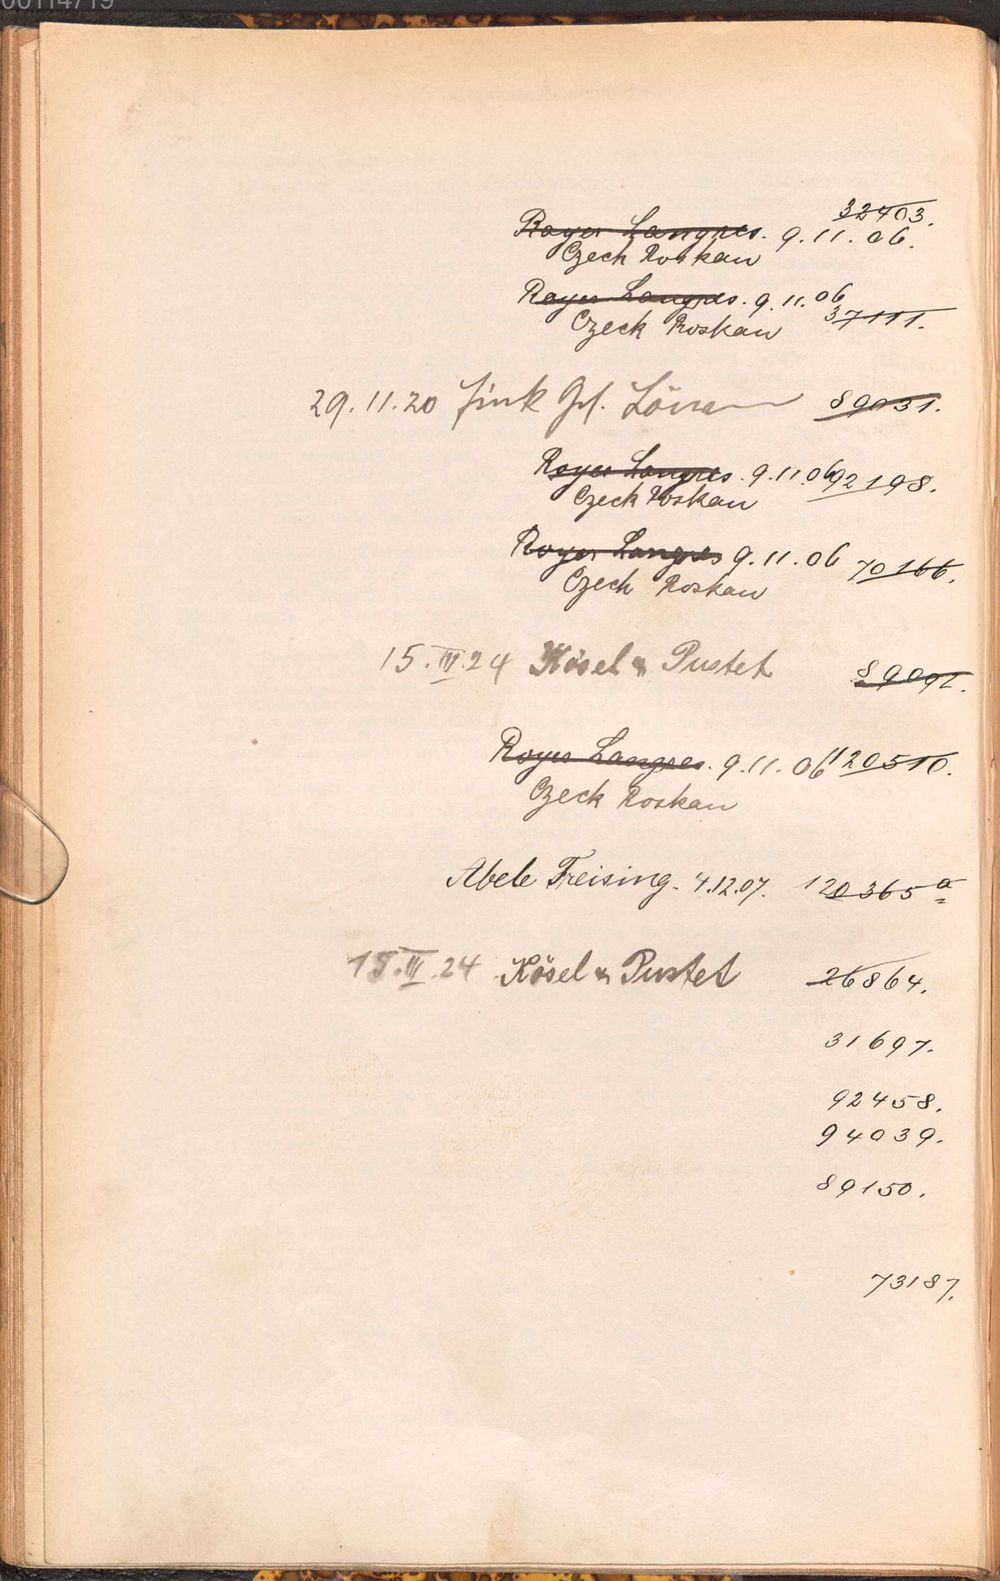 00114719
32403.
Royer Langres. 9.11.06.
Czech Roskau
Royer Langres. 9.11.06
37111.
Czeck Roskau
29.11.20 Fink Gf. 89031.
Royer Langres. 9.11.06 92198.
Czeck Roskau
Royer Langres 9.11.06 70166.
Czech Roskau
15.III.24 Kösel & Pustet 89091.
Royer Langres. 9.11.06 120510.
Czeck Roskau
Abele Freising. 4.12.07. 120365 a
15.III.24 Kösel & Pustet 26864.
31697.
92458.
94039.
89150.
73187.